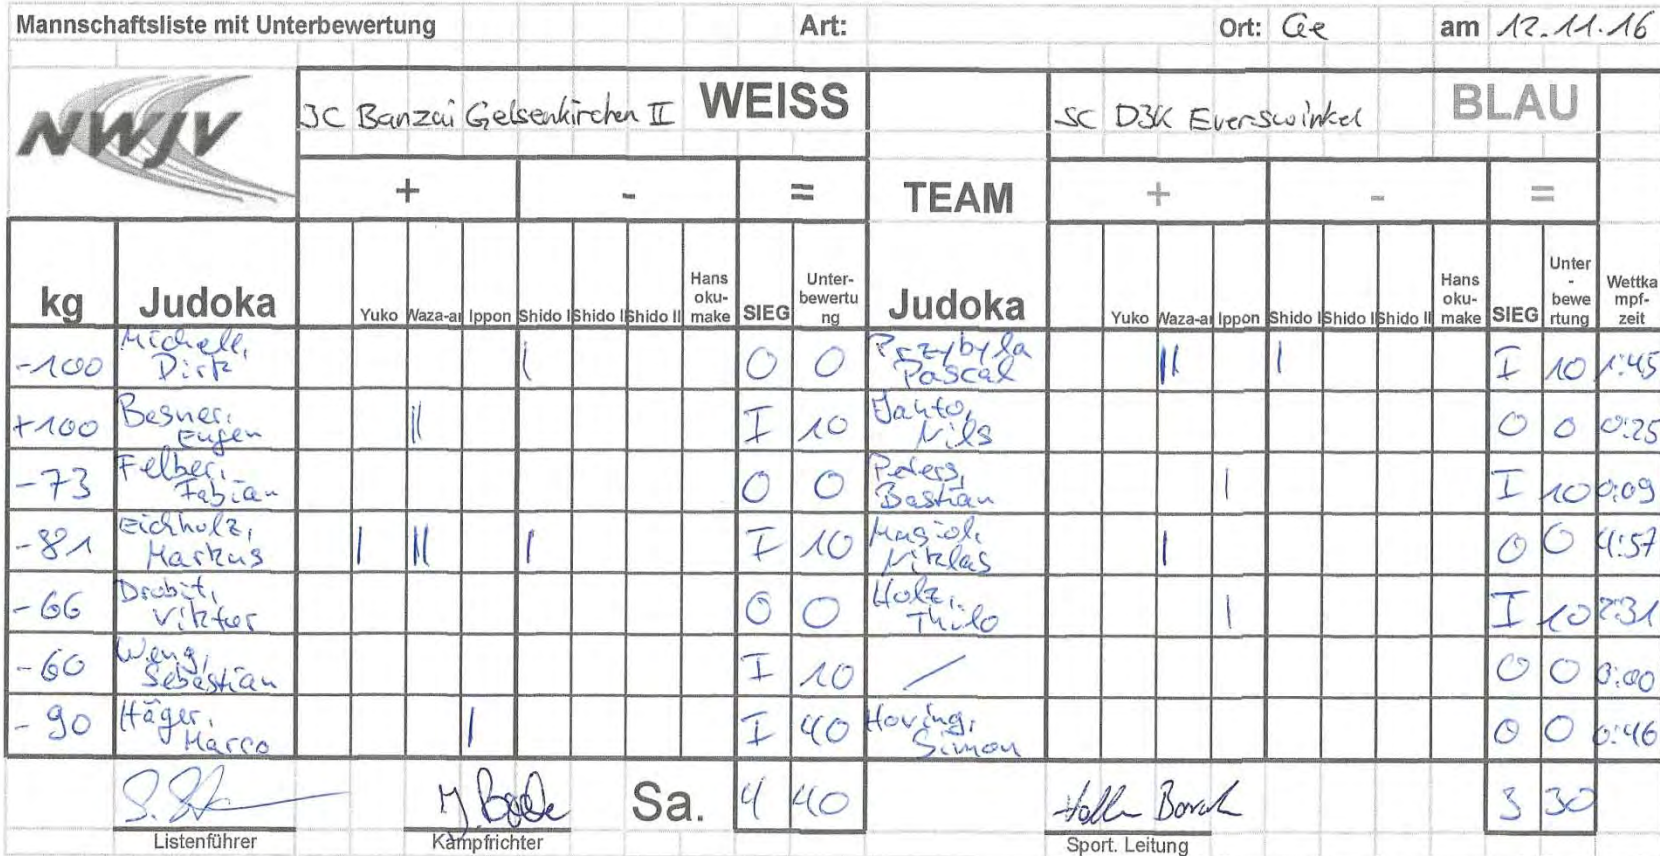 Mannschaftsliste mit Unterbewertung Art: Ort: Ge am 12.11.16
NWJV JC Banzai Gelsenkirchen II WEISS SC DJK Everswinkel BLAU
+ - = TEAM + - =
kg Judoka Yuko Waza-ar Ippon Shido I Shido I Shido II Hans oku- make SIEG Unter- bewertu ng Judoka Yuko Waza-ar Ippon Shido I Shido I Shido II Hans oku- make SIEG Unter - bewe rtung Wettka mpf- zeit
-100 Michell, Dirk | 0 0 Przybyla Pascal || | I 10 1:45
+100 Besner, Eugen || I 10 Nils 0 0 0:25
-73 Felber, Fabian 0 0 Peters, Bastian | I 10 0:09
-81 Eichholz, Markus | || | I 10 Niklas | 0 0 4:57
-66 Drobit, Viktor 0 0 Holz, Thilo | I 10 2:31
-60 Weng, Sebastian I 10 / 0 0 0:00
-90 Häger, Marco | I 40 Hoving, Simon 0 0 0:46
Sa. 4 40 3 30
Listenführer Kampfrichter Sport. Leitung